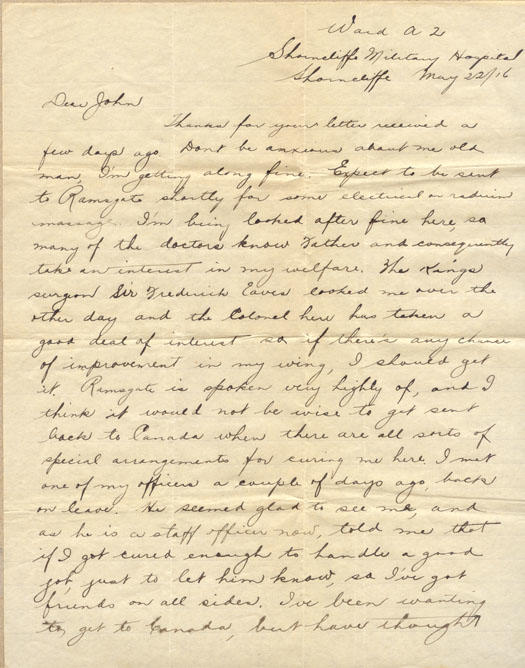 Ward A 2
Shorncliffe Military Hospital
Shorncliffe May 22/16
Dear John
Thanks for your letter received a
few days ago. Dont be anxious about me old
man, I'm getting along fine. Expect to be sent
to Ramsgate shortly for some electrical or radium
massage. I'm being looked after fine here, so
many of the doctors know Father and consequently
take an interest in my welfare. The King's
surgeon Sir Frederick Eaves looked me over the
other day and the Colonel here has taken a
good deal of interest so if there's any chance
of improvement in my wing, I should get
it. Ramsgate is spoken very highly of, and I
think it would not be wise to get sent
back to Canada when there are all sorts of
special arrangements for curing me here. I met
one of my officers a couple of days ago, back
on leave. He seemed glad to see me, and
as he is a staff officer now, told me that
if I got cured enough to handle a good
job, just to let him know, so I've got
friends on all sides. I've been wanting
to get to Canada, but have thought